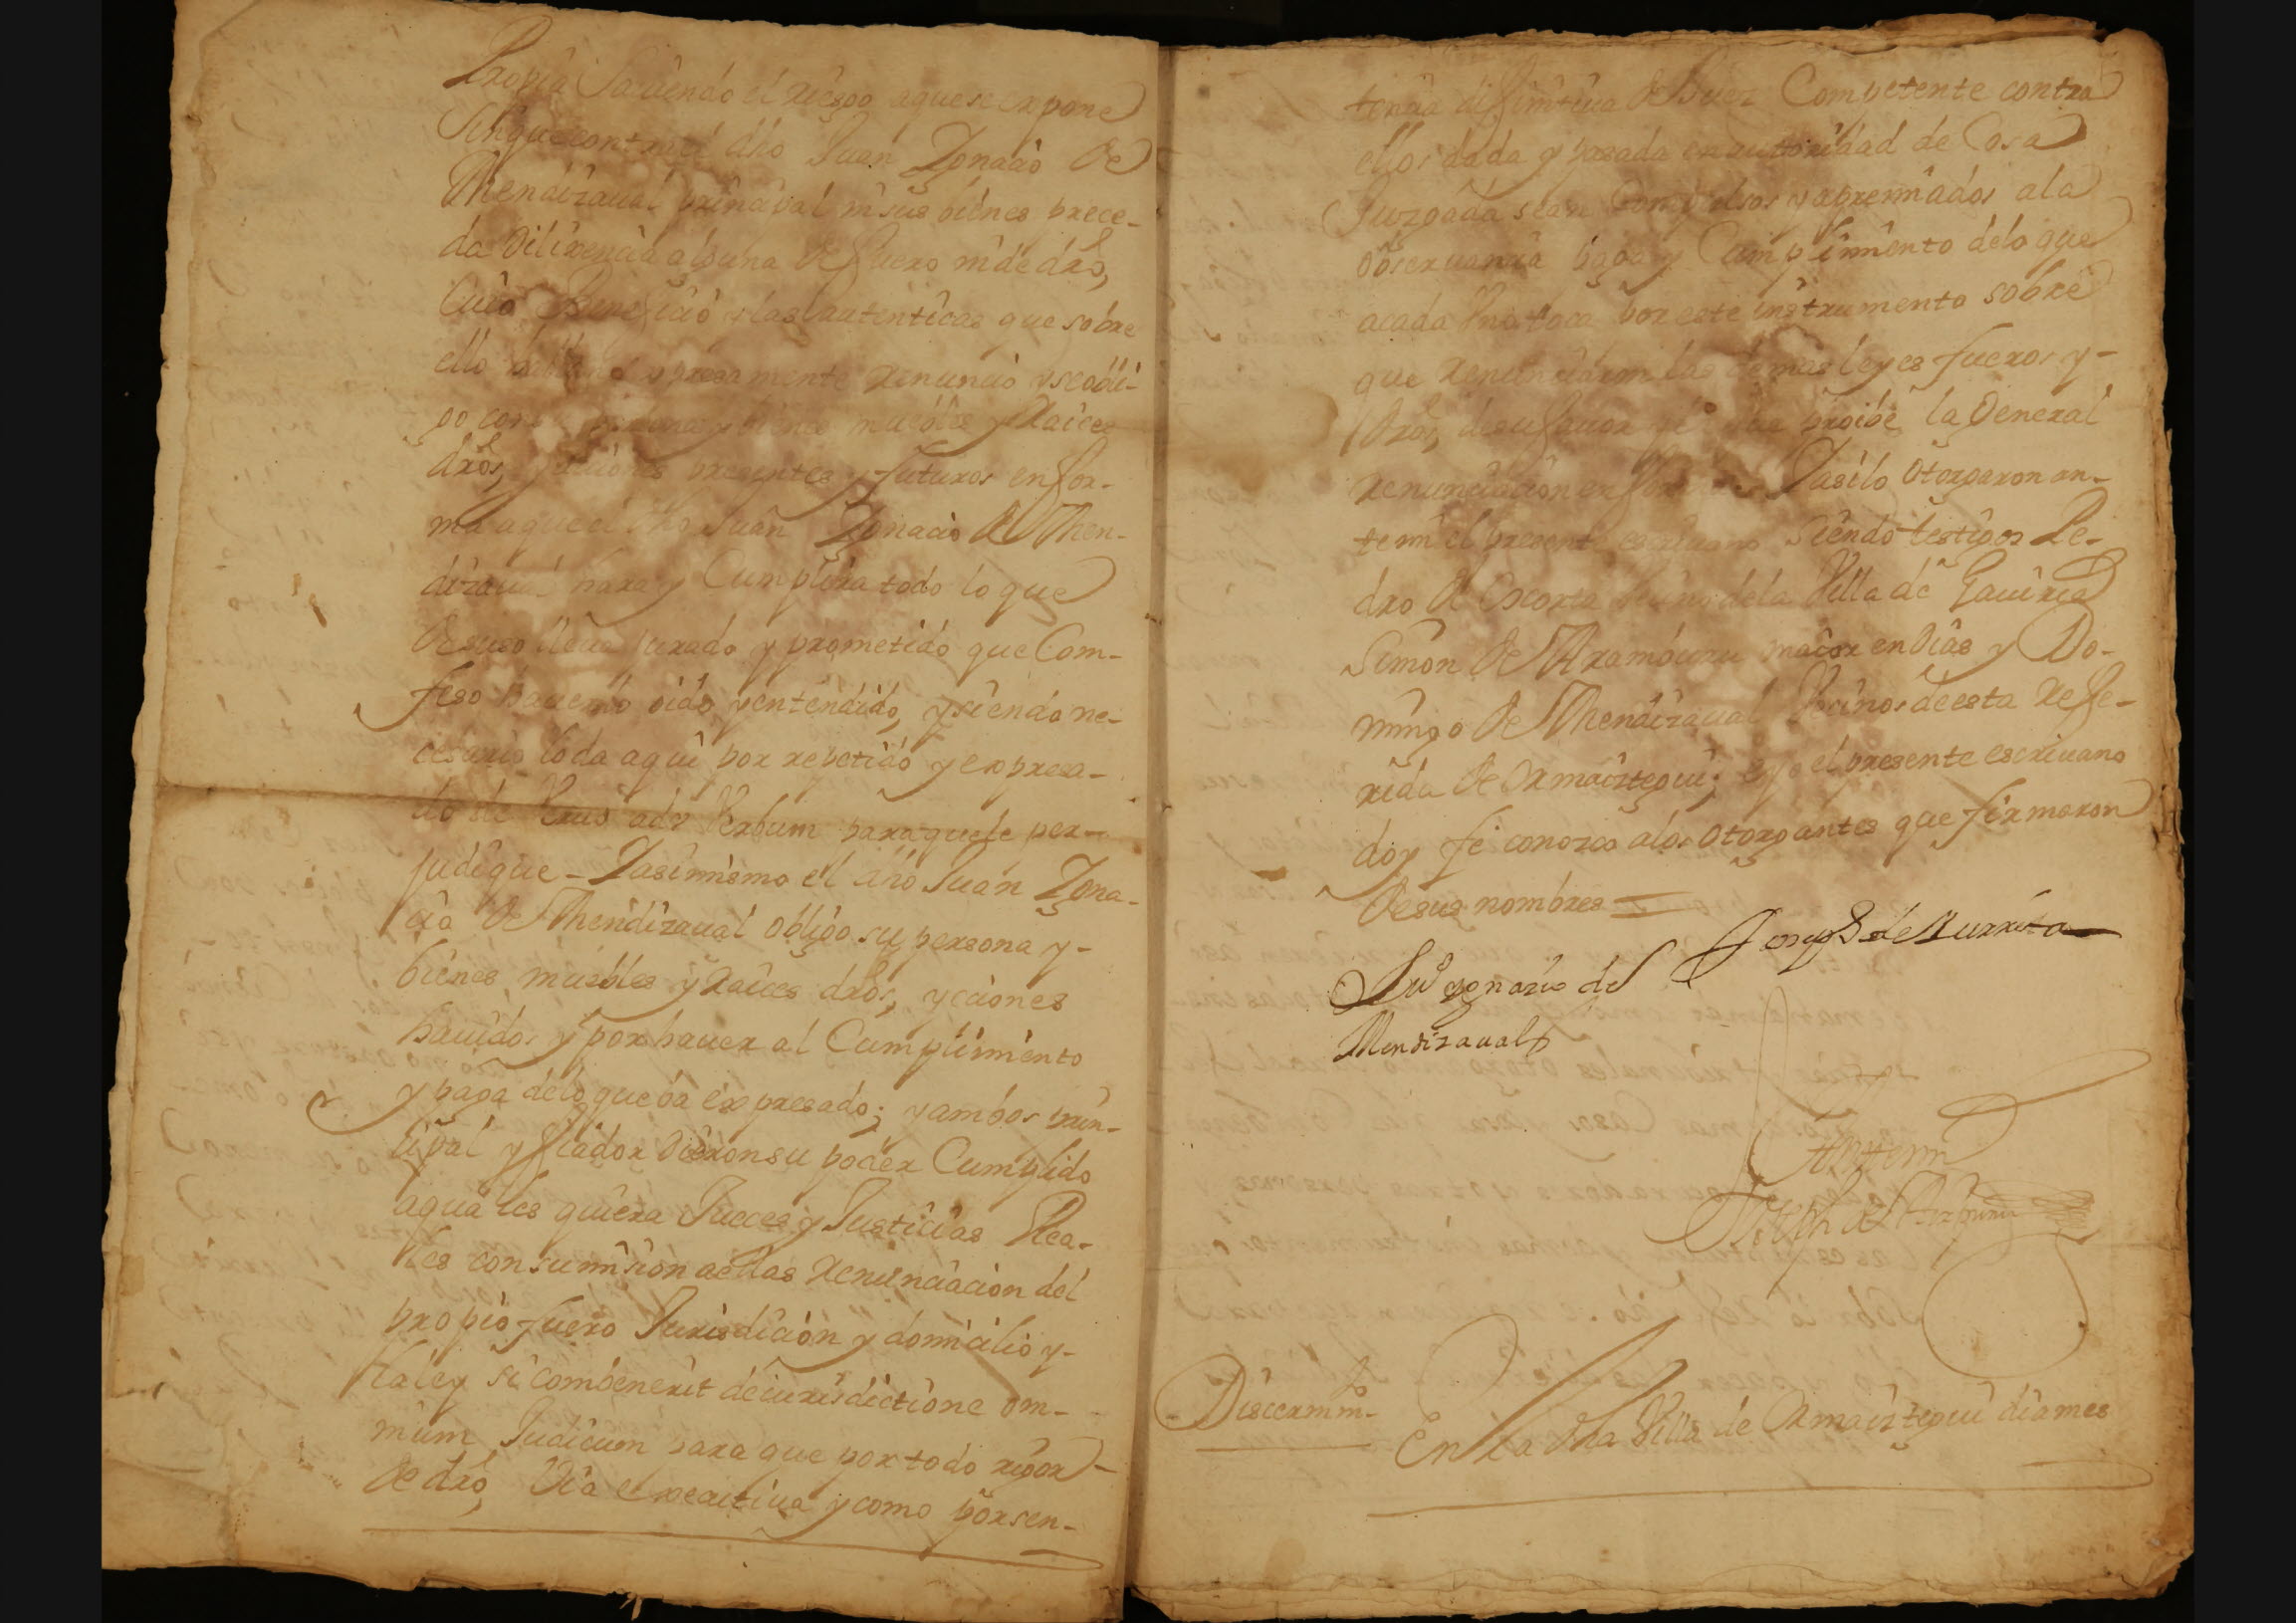 Propia Sauiendo el riesgo aquese expone
Sinque contra el dho Juan Ygnacio de
Mendizaual prinzipal ni sus bienes prece-
da diligencia alguna de fuero ni de dro,
Cuio Beneficio y las autenticas que sobre
ello hablan expresamente renuncio y se obli-
go con su persona y bienes muebles y Raices
dros, y acciones presentes y futuros en for-
ma aque el dho Juan Ygnacio de Mhen-
dizaual hara y Cumplira todo lo que
de suso lleua jurado y prometido que Com-
feso hauerlo oido y entendido, y siendo ne-
cesario lo da aqui por repetido y expresa-
do de Veruo ad Verbum para que le per-
judique - Yasimismo el dho Juan Ygna-
cio de Mhendizaual obligo su persona y-
bienes muebles y Raices dros, y ciones
hauidos y por hauer al Cumplimiento
y paga delo que ba expresado; y ambos prin-
cipal y fiador dieron su poder Cumplido
aquales quiera Jueces y Justicias Rea-
les con sumision aellas renunciacion del
propio fuero Jurisdicion y domicilio y-
la ley si combenerit de iurisdictione om-
nium Judicum para que por todo rigor-
de dro, via executiua y como por sen-
tencia difinitiua de Juez Competente contra
ellos dada y pasada en autoridad de Cosa
Juzgada sean Compulsos y apremiados ala
obseruancia paga y Cumplimiento delo que
acada Vno toca por este instrumento sobre
que renunciaron las demas leyes fueros y-
dros, de su fauor que proibe la General
renunciacion en forma Yasilo otorgaron an-
temi el presente escriuano siendo testigos Pe-
dro de vecino dela Villa de Gauiria
Simon de Aramburu maior en dias y Do-
mingo de Mhendizaual Vecinos de esta refe-
rida de Ormaiztegui; e yo el presente escriuano
doy fe conozco alos otorgantes que firmaron
de sus nombres =
Joseph de Murrita
Juº ygnazio de
Mendizaual
Antemi
Joseph de
Discernim.to
En la dha Villa de Ormaiztegui dia mes